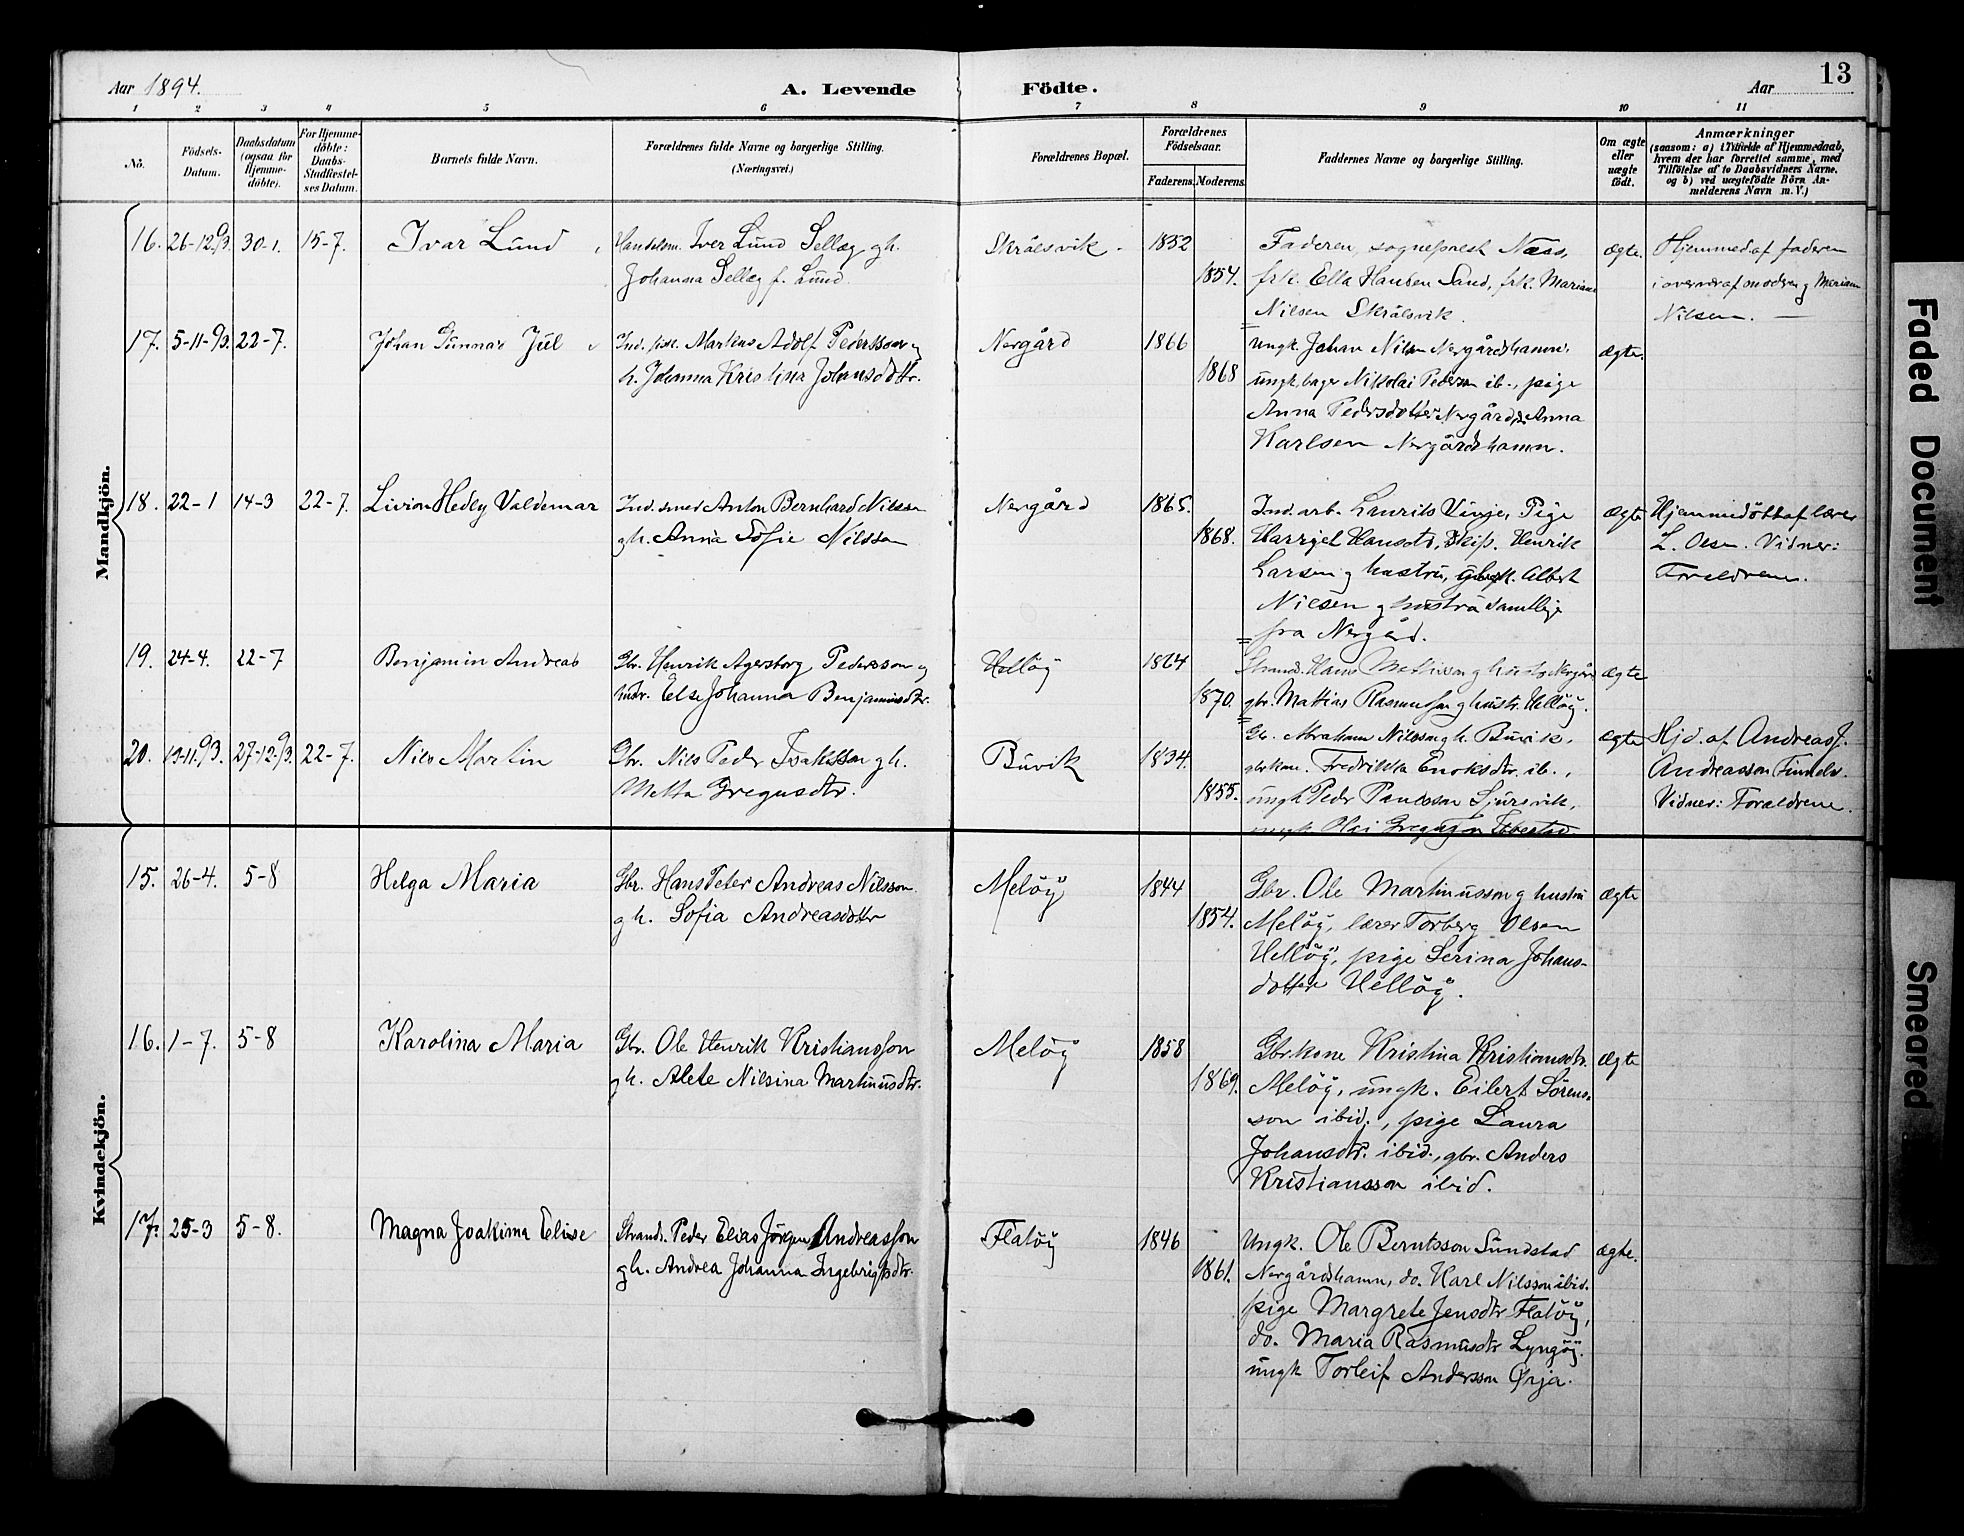 13
Aar 1894.
A. Levende Födte.
Aar
1 2 3 4 5 6 7 8 9 10 11
No.
Födsels-Datum.
Daabsdatum (ogsaa for Hjemme-döbte).
For Hjemme-döbte: Daabs-Stadfæstel-ses Datum.
Barnets fulde Navn.
Forældrenes fulde Navne og borgerlige Stilling. (Næringsvei.)
Forældrenes Bopæl.
Forældrenes Födselsaar.
Faderens. Moderens.
Faddernes Navne og borgerlige Stilling.
Om ægte eller uægte födt.
Anmærkninger
(saasom: a) i Tilfælde af Hjemmedaab,
hvem der har forrettet samme, med
Tilföielse af to Daabsvidners Navne,
og b) ved uægtefödte Börn An-
melderens Navn m. V.)
Mandkjön.
16. 26-12-93. 30-1. 15-7. Ivar Lund
Handelsm. Iver Lund Sellæg gh.
Johanna Sellæg f. Lund.
Skrålsvik 1852 1854.
Faderen, sogneprest Næss,
frk. Ella Hansen Sand, frk. Mariane
Nilsen Skrålsvik.
ægte.
Hjemmed af faderen
i overvær af moderen g Mariane
Nilsen.
17. 5-11-93. 22-7. Johan Gunnar Jul
Ind. fisk. Martius Adolf Pedersson g
h. Johanna Kristina Johansdottr.
Nergård 1866 1868
ungk. Johan Nilsen Nergårdshamn,
ungk. bager Nikolai Pedersen ib., pige
Anna Pedersdotter Nergård, Anna
Karlsen Nergårdshamn.
ægte.
18. 22-1 14-3 22-7. Livion Hedly Valdemar
Ind. smed Anton Bernhard Nilssen
gh. Anna Sofie Nilssen
Nergård 1865. 1868.
Ind. arb. Laurits Vinje, Pige
Harriet Hansdtr, Skip. Henrik
Larsen g hustru, Albert
Nilsen g hustru samtlige
fra Nergård.
ægte
Hjemmedöbt af lærer
L. Olsen. Vidner:
Forældrene.
19. 24-4. 22-7 Benjamin Andreas
Gbr. Henrik Agersborg Pedersson g
hustr. Else Johanna Benjaminsdtr.
Uellöy 1864 1870.
Strands. Hans Mathisson g hustr. Nergård
gbr. Mattias Rasmusson g hustr. Uellöy.
ægte
20. 19-11-93. 27-12-93. 22-7. Nils Martin
Gbr. Nils Peder Isaksson gh.
Metta Gregusdtr.
Buvik 1834. 1855.
Gbr. Abraham Nilsson gh. Buvik,
gbrkone. Fredrikka Enoksdtr. ib.,
ungk. Peder Paulsson Sjursvik,
ungk. Olai Gregusson
ægte
Hjd. af Andreas J.
Andreasson
Vidner: Forældrene.
Kvindekjön.
15. 26-4. 5-8 Helga Maria
Gbr. Hans Peter Andreas Nilsson
gh. Sofia Andreasdottr
Melöy 1844 1854.
Gbr. Ole Martinusson g hustru
Melöy, lærer Torberg Olsen
Uellöy, pige Serina Johans-
dotter Uellöy.
ægte
16. 1-7. 5-8 Karolina Maria
Gbr. Ole Henrik Kristiansson
gh. Alete Nilsina Martinusdtr.
Melöy 1858 1869.
Gbrkone Kristina Kristiansdtr.
Melöy, ungk. Eilert Sörens-
son ibid., pige Laura
Johansdtr. ibid., gbr. Anders
Kristiansson ibid.
ægte
17. 25-3 5-8. Magna Joakima Elise
Strands. Peder Elias Jörgen Andreasson
gh. Andrea Johanna Ingebrigtsdtr.
Flatöy 1846 1861.
Ungk. Ole Berntsson Sundstad
Nergårdshamn, do. Karl Nilsson ibid.
pige Margrete Jensdtr Flatöy,
do. Maria Rasmusdtr Lyngöy.
ungk Torleif Andersson Ørja.
ægte.
Faded Document
Smeared